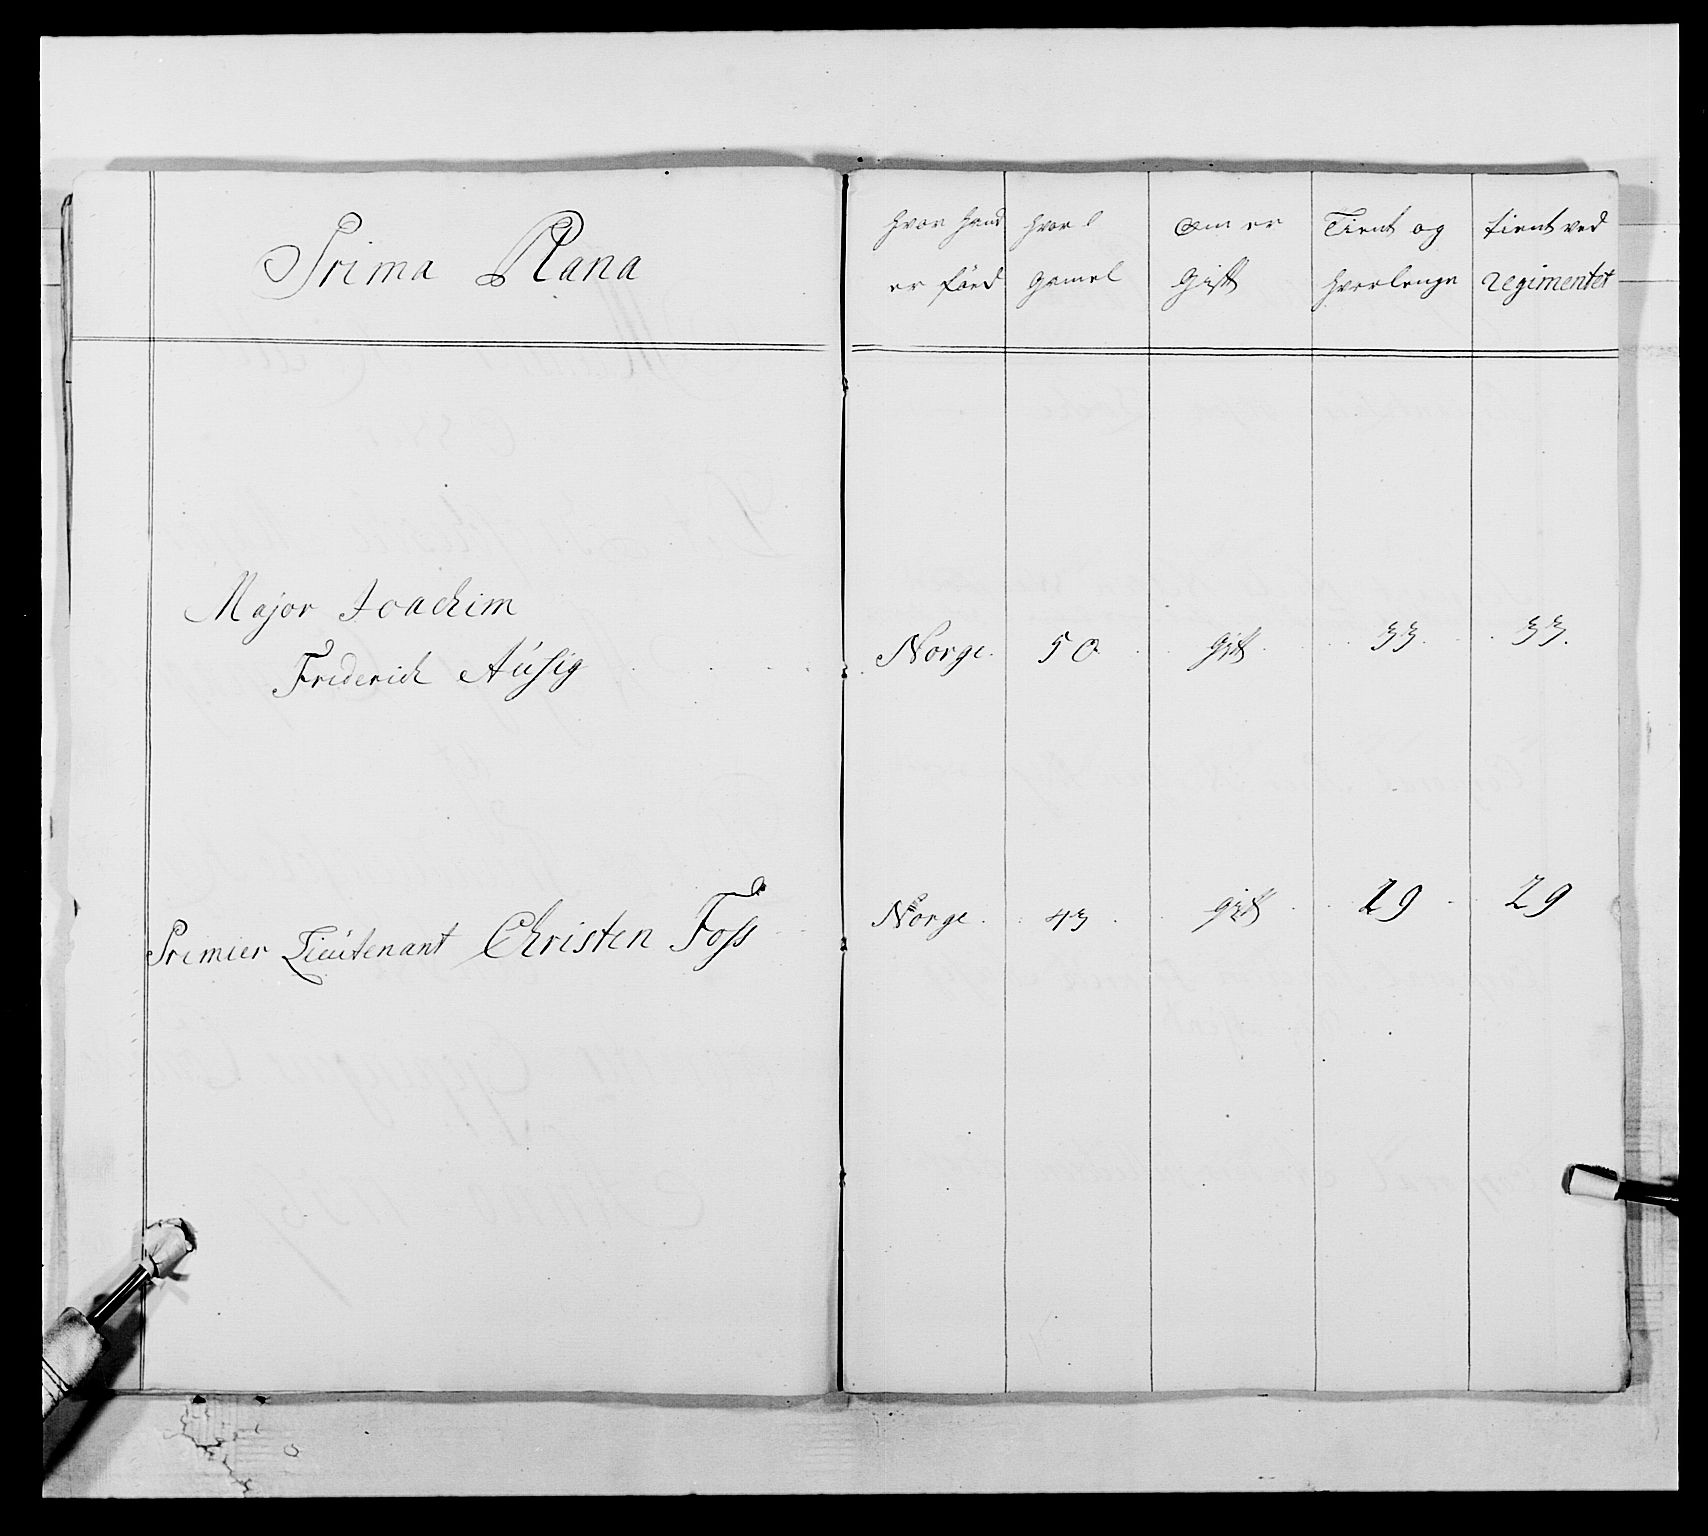 Prima Plana
hvor hand er föed
hvor gamel
Om er Gift
Tient og hvorlenge
tient ved regimentet
Major Joachim
Friderich Aúsig
Norge. 50 gift 33 33.
Premier Lieútenant Christen Foss
Norge. 43 gift 29 29